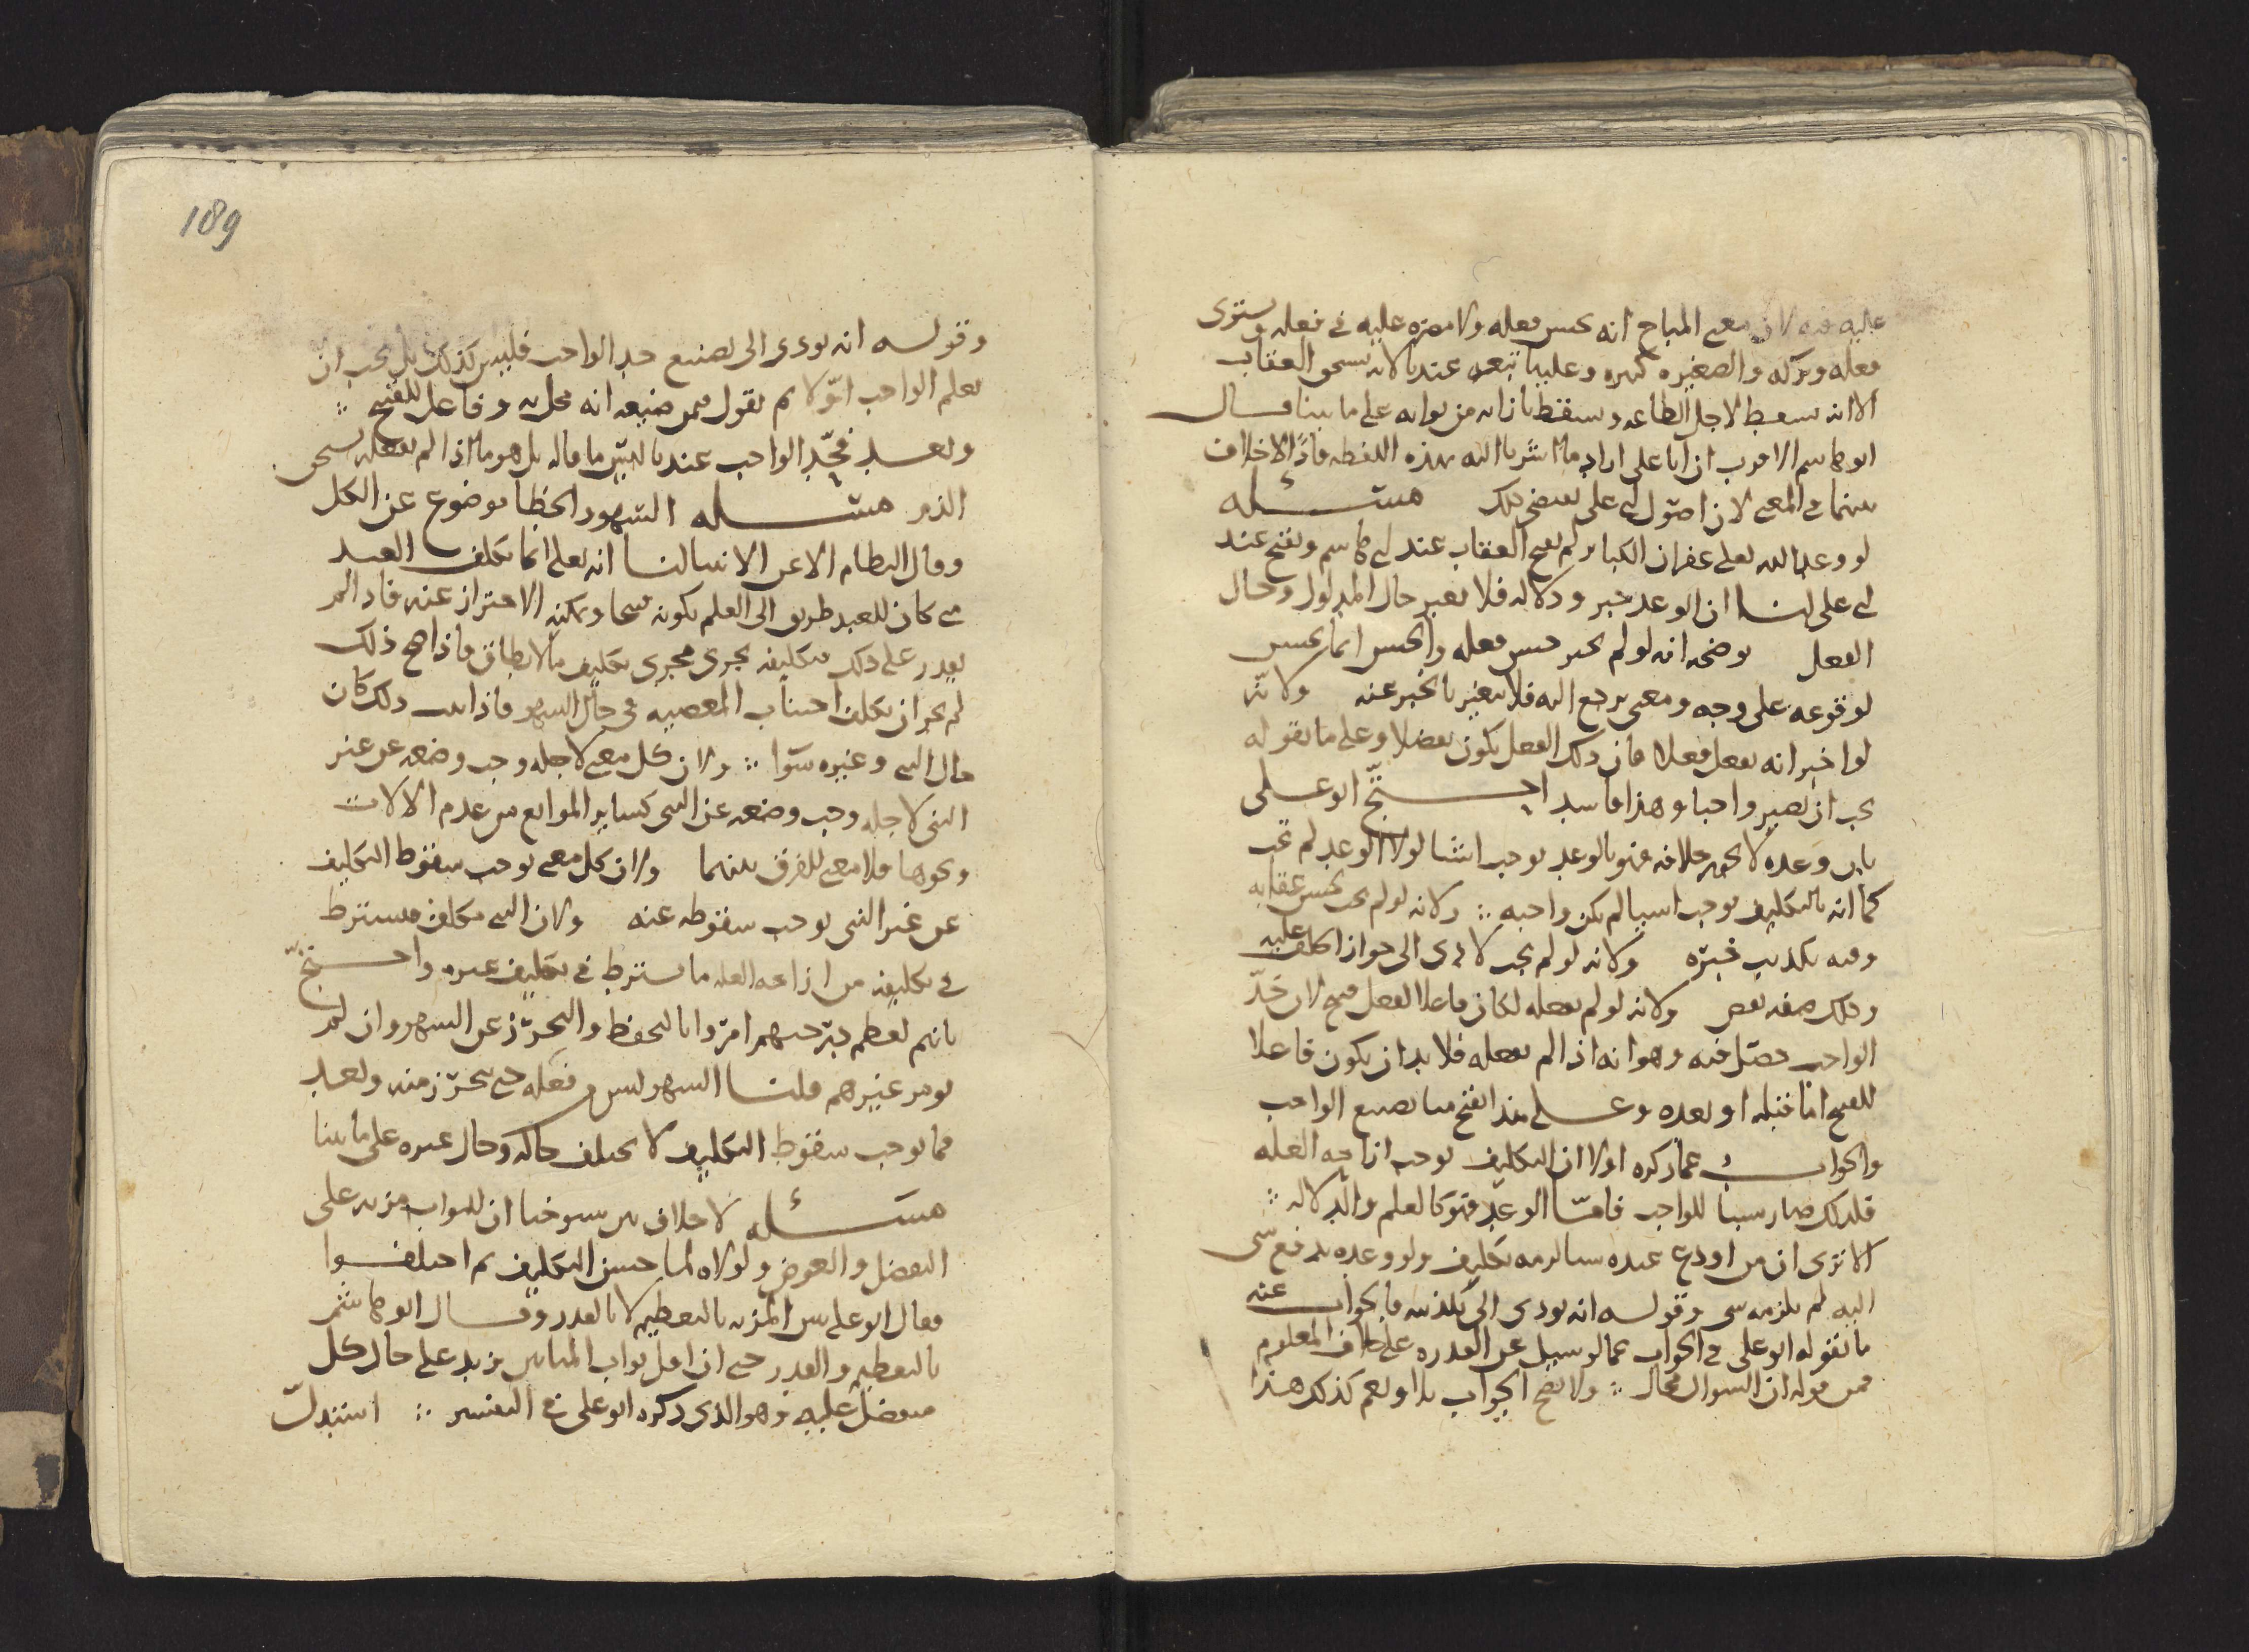 عليه فيه لان معنى المباح انه يحسن فعله ولا مضره عليه في فعله ويستوى
فعله وتركه والصغيره كبيره وعليها تبعه عندنا لانه يستحق العقاب
الا انه سقط لاجل الطاعه وسقط بازائه من ثوابه على ما بينا قال
ابو هاشم الاقرب ان ابا على اراد ما اشرنا اليه بهذه اللفظه فاذا لا خلاف
بينهما في المعنى لان اصول ابى على تقتضى ذلك مسئله
لو وعد الله تعلى غفران الكباير لم يقبح العقاب عند ابى هاشم وقبح عند
ابى على لنا ان الوعد خبر ودلاله فلا يغير حال المدلول وحال
الفعل يوضحه انه لو لم يخبر حسن فعله والحسن انما يحسن
لوقوعه على وجه ومعنى يرجع اليه فلا يتغير بالخبر عنه ولانه
لو اخبر انه يفعل فعلا فان ذلك الفعل يكون تفضلا وعلى ما يقوله
يجب ان يصير واجبا وهذا فاسد احتج ابو على
بان وعده لا يجوز خلافه فهو بالوعد يوجب اشيا لولا الوعد لم تجب
كما انه بالتكليف يوجب اشيا لم يكن واجبه ∴ ولانه لو لم يجب لحسن عقابه
وفيه تكذيب خبره ولانه لو لم يجب لادى الى جواز الخلف عليه
وذلك صفه نقص ولانه لو لم يفعله لكان فاعلا لفعل قبيح لان حد
الواجب حصل فيه وهو انه اذا لم يفعله فلا بد ان يكون فاعلا
للقبيح اما قبله او بعده وعلى هذا القبح مما يصنع الواجب
والجواب عما ذكره اولا ان التكليف يوجب ازاحه العله
فلذلك صار سببا للواجب فاما الوعد فهو كالعلم والدلاله ∴
الا ترى ان من اودع عنده شيا لزمه تكليف ولو وعده بدفع شى
اليه لم يلزمه شى وقوله انه يودى الى تكذيبه فالجواب عنه
ما نقوله ابو على في الجواب عما لو سيل عن القدره على خلاف المعلوم
فمن قوله ان السوال محال ∴ ولا يصح الجواب بلا او نعم كذلك هذا
189
وقوله انه يودى الى تصنيع حد الواجب فليس كذلك بل يجب ان
يعلم الواجب اولا ثم نقول فمن ضيعه انه مخل به وفاعل للقبيح ∴
وبعد فحد الواجب عندنا ليس ما قاله بل هو ما اذا لم يفعله يستحق
الذم مسئله السهو والخطا موضوع عن الكل
وقال النظام الا عن الانبيا لنا انه تعلى انما يكلف العبد
متى كان للعبد طريق الى العلم بكونه قبيحا ويمكنه الاحتراز عنه فاذا لم
يقدر على ذلك فتكليفه يجرى مجرى تكليف ما لا يطاق فاذا صح ذلك
لم يجز ان يكلف اجتناب المعصيه في حال السهو فاذا ثبت ذلك كان
حال النبى وغيره سوا ∴ ولان كل معنى لاجله وجب وضعه عن غير
النبى لاجله وجب وضعه عن النبى كساير الموانع من عدم الالات
ونحوها فلا معنى للفرق بينهما ولان كل معنى يوجب سقوط التكليف
عن غير النبى يوجب سقوطه عنه ولان النبى مكلف فيشترط
في تكليفه من ازاحه العله ما يشترط في تكليف غيره واحتج
بانهم لعظم درجتهم امروا بالتحفظ والتحرز عن السهو وان لم
يومر غيرهم قلنا السهو ليس فعله حتى يتحرز منه وبعد
فما يوجب سقوط التكليف لا يختلف حاله وحال غيره على ما بينا
مسئله لا خلاف بين شيوخنا ان للثواب مزيه على
التفضل والعوض ولولاه لما حسن التكليف ثم اختلفوا
فقال ابو على بين المزيه بالتعظيم لا بالقدر وقال ابو هاشم
بالتعظيم والقدر حتى ان اقل ثواب المثابين يزيد على حال كل
متفضل عليه وهو الذى ذكره ابو على في التفسير ∴ استدل